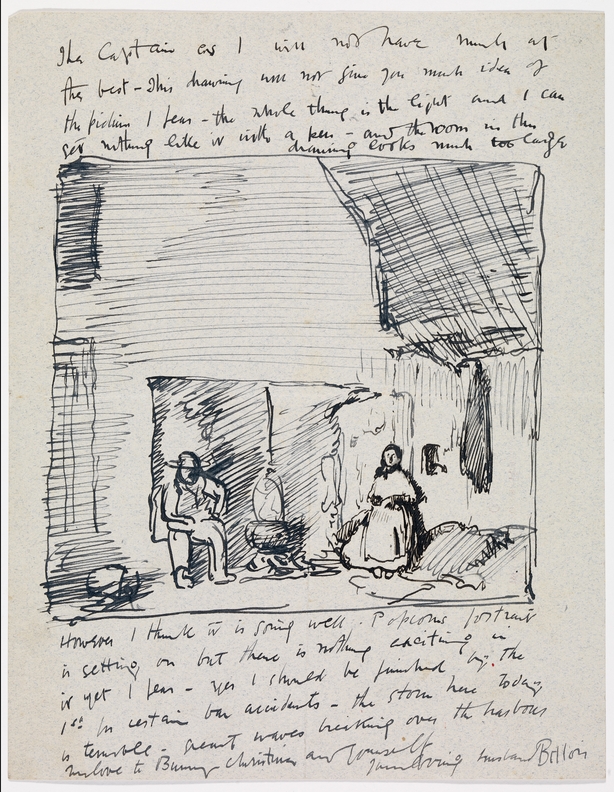 The Captain as I will not have much at
the best - This drawing will not give you much idea of
the picture I fear - the whole thing is the light and I can
get nothing like it with a pen - and the room in this
drawing looks much too large
However I think it is going well. Popcorns portrait
is getting on but there is nothing exciting in
it yet I fear - yes I should be finished by the
1st for certain bar accidents - the storm here today
is terrible - great waves breaking over the harbour
my love to Bunny Christina and yourself
your loving husband